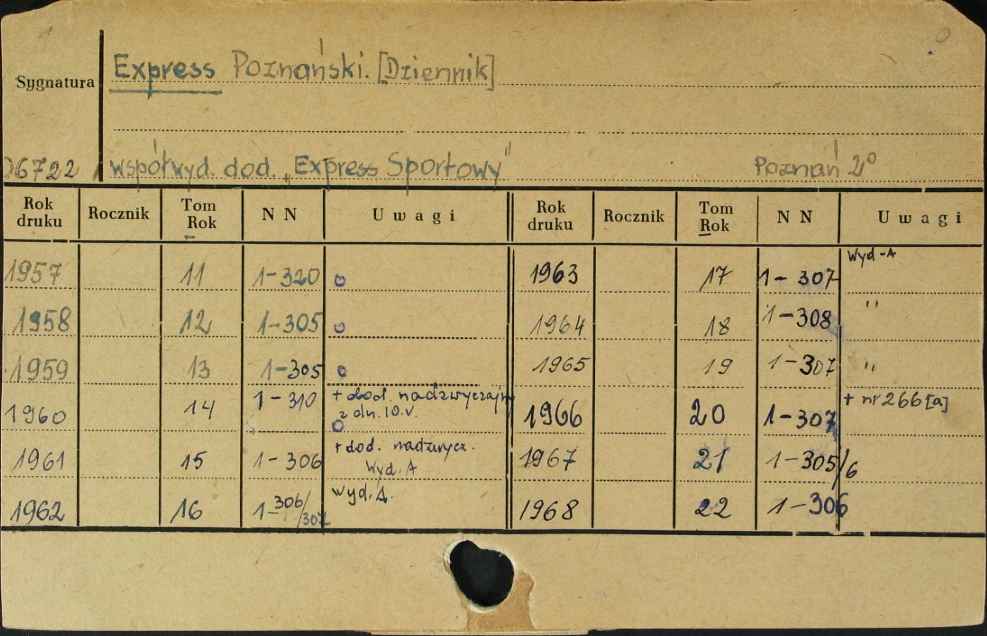 Sygnatura
Express Poznański. [Dziennik]
D6722 współwyd. dod. „Express Sportowy" Poznań 2°
Rok druku Rocznik Tom Rok NN Uwagi Rok druku Rocznik Tom Rok NN Uwagi
1957 11 1-320 o 1963 17 1-307 Wyd-A
1958 12 1-305 o 1964 18 1-308 "
1959 13 1-305 o 1965 19 1-307 "
1960 14 1-310 + dod. nadzwyczajny z dn. 10.V. o 1966 20 1-307 + nr 266[a]
1961 15 1-306 + dod. nadzwycz. Wyd. A 1967 21 1-305/6
1962 16 1-306/307 Wyd. A. 1968 22 1-306